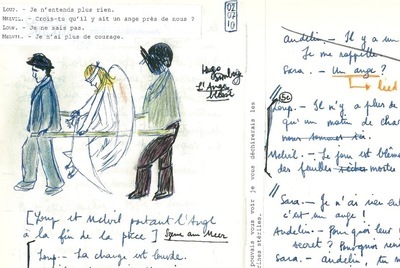 LOUP. - Je n'entends plus rien.
MELVIL. - Crois-tu qu'il y ait un ange près de nous ?
LOUP. - Je ne sais pas.
MELVIL. - Je n'ai plus de courage.
02
07
10
Hugo
L'Ange
[Loup et Melvil portant l'Ange
à la fin de la pièce]
Loup. - La charge est lourde.
pouvais vous voir je vous déchirerais les
rines stériles.
Andelin. - Il y a un
Je me rappelle
Sara. - Un ange ?
Loup. - Il n'y a plus de
qu'un matin de cha
nous sommes
Melvil. - Le jour est blême
des feuilles sèches mortes
Sara. - Je n'ai rien en
c'est un ange !
Andelin. - Pour quoi leur
secret ? Pourquoi
Sara. - andelin, tu m